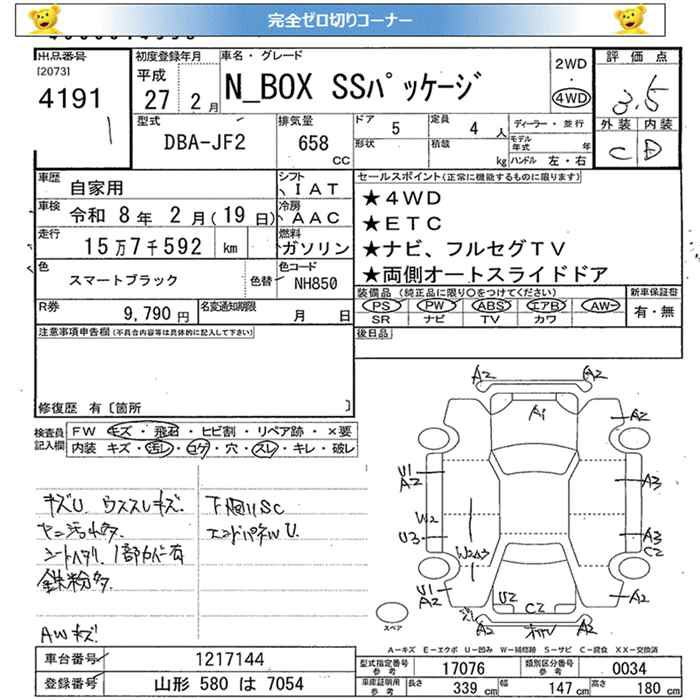 完全ゼロ切りコーナー
出品番号
[2073]
4191
初度登録年月
平成
27 2月
車名・グレード
N_BOX SSパッケージ
2WD
・
4WD
評価点
3.5
外装 内装
C D
型式
DBA-JF2
排気量
658
CC
ドア 5
定員 4人
形状
積載 kg
ディーラー・並行
モデル年式 年
ハンドル 左・右
車歴
自家用
シフト
IAT
車検
令和 8年 2月(19日)
冷房
AAC
走行
15万7千592 km
燃料
ガソリン
色
スマートブラック
色替
色コード
NH850
R券
9,790円
名変通知期限
月 日
セールスポイント(正常に機能するものに限ります)
★4WD
★ETC
★ナビ、フルセグTV
★両側オートスライドドア
装備品(純正品に限り○をつけてください)
PS PW ABS エアB AW
SR ナビ TV カワ
新車保証書
有・無
後日品
注意事項申告欄(不具合内容等は具体的に記入して下さい)
修復歴 有〔箇所 〕
検査員記入欄
FW キズ・飛石・ヒビ割・リペア跡・×要
内装 キズ・汚し・コゲ・穴・スレ・キレ・破レ
キズU ウススレキズ
ヤニ汚れ多
シートヘタリ 1部カビ有
鉄粉多
AWキズ
下廻りSC
エンドパネルU
A2 A2
A1
A2
U1
A2
A3
W2
U3
W2A3
A3
C2
U2
C2
U1
A2
A2
A2
A2
スペア
A-キズ E-エクボ U-凹み W-補修跡 S-サビ C-腐食 XX-交換済
車台番号
1217144
登録番号
山形 580 は 7054
型式指定番号
参考
17076
類別区分番号
参考
0034
車庫証明用
参考
長さ 339 cm
幅 147 cm
高さ 180 cm